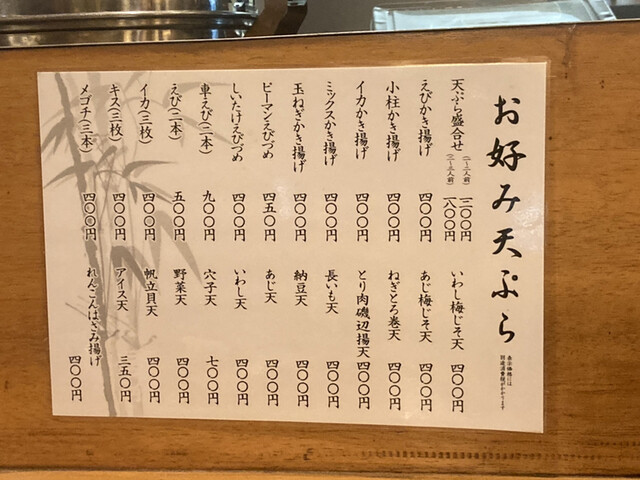 お好み天ぷら
表示価格には
別途消費税がかかります
天ぷら盛合せ
(一~二人前) 一二〇〇円
(二~三人前) 一八〇〇円
えびかき揚げ 四〇〇円
小柱かき揚げ 四〇〇円
イカかき揚げ 四〇〇円
ミックスかき揚げ 四〇〇円
玉ねぎかき揚げ 四〇〇円
ピーマンえびづめ 四五〇円
しいたけえびづめ 四〇〇円
車えび(二本) 九〇〇円
えび(二本) 五〇〇円
イカ(三枚) 四〇〇円
キス(三枚) 四〇〇円
メゴチ(三本) 四〇〇円
いわし梅じそ天 四〇〇円
あじ梅じそ天 四〇〇円
ねぎとろ巻天 四〇〇円
とり肉磯辺揚天 四〇〇円
長いも天 四〇〇円
納豆天 四〇〇円
あじ天 四〇〇円
いわし天 四〇〇円
穴子天 七〇〇円
野菜天 四〇〇円
帆立貝天 四〇〇円
アイス天 三五〇円
れんこんはさみ揚げ 四〇〇円